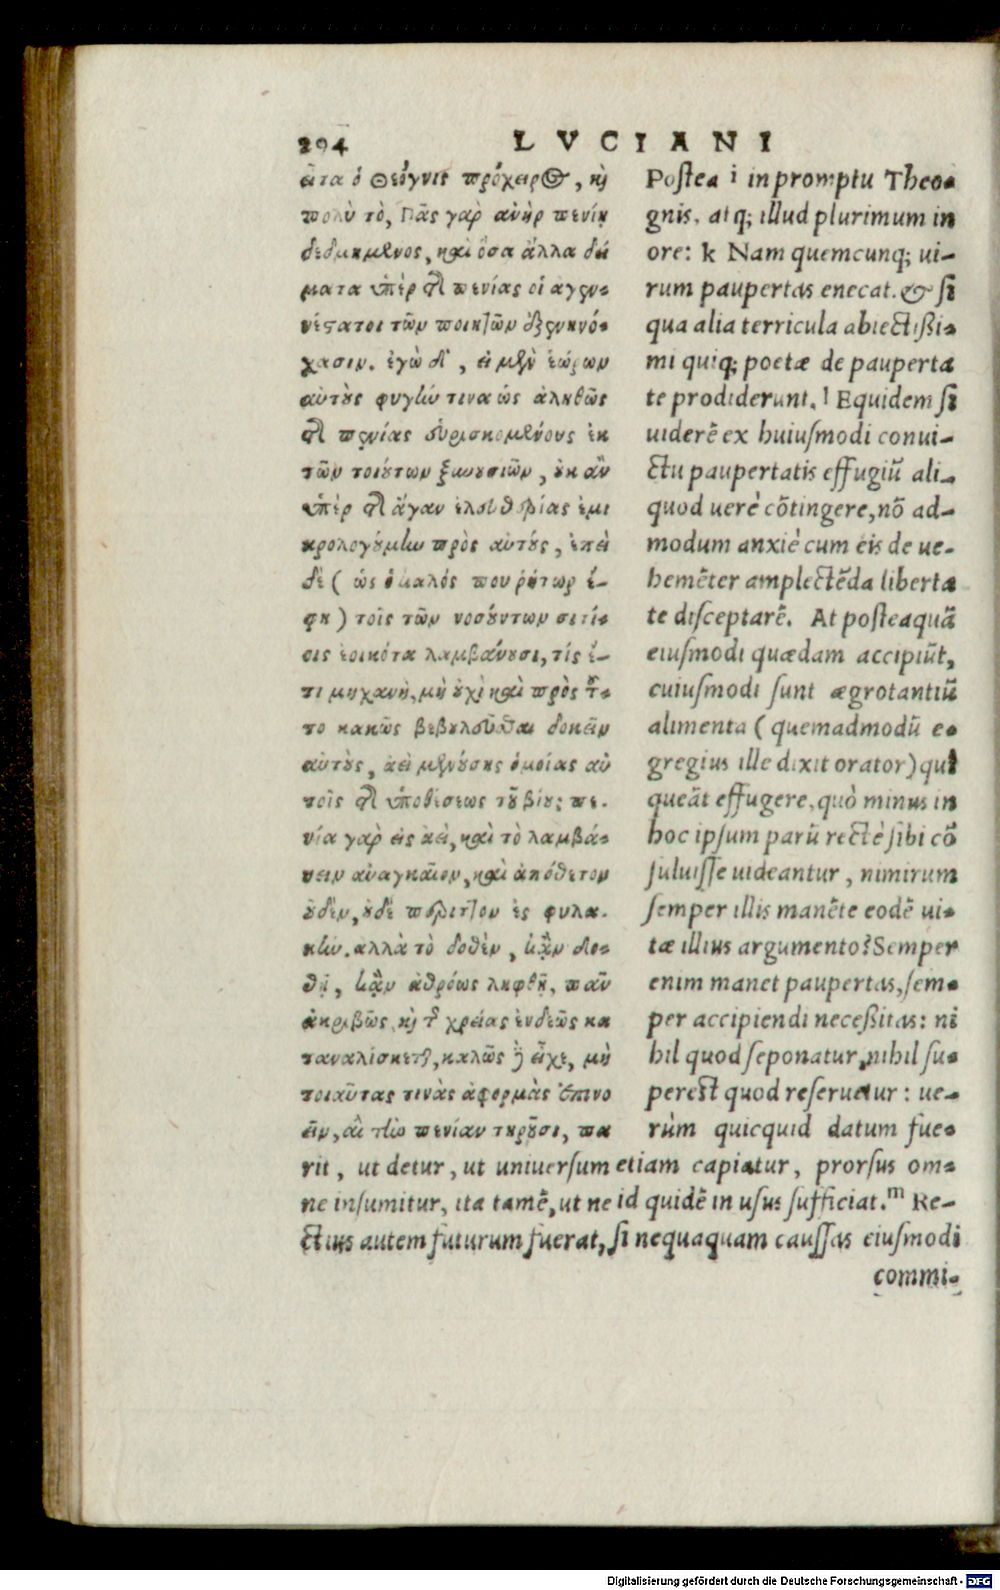 294 LVCIANI
εἶτα ὁ Θεόγνις πρόχειρος, καὶ
πολὺ τὸ, Πᾶς γαρ ἀνὴρ πενίῃ
δεδμημένος, καὶ ὅσα ἄλλα δεί
ματα ὑπὲρ τῆς πενίας οἱ αγεν-
νέστατοι τῶν ποιητῶν ἐξενηνό-
χασιν. ἐγὼ δ', εἰ μὲν ἑώρων
αὐτοὺς φυγήν τινα ὡς ἀληθῶς
τῆς πενίας εὑρισκομένους ἐκ
τῶν τοιούτων ξυνουσιῶν, οὐκ ἂν
ὑπὲρ τῆς ἄγαν ἐλευθερίας ἐμι
κρολογούμην πρὸς αὐτούς, ἐπεὶ
δὲ ( ὡς ὁ καλός που ῥήτωρ ἔ-
φη ) τοῖς τῶν νοσούντων σιτί-
οις ἐοικότα λαμβάνουσι, τίς ἔ-
τι μηχανὴ, μὴ οὐχὶ καὶ πρὸς τοῦ-
το κακῶς βεβουλεῦσθαι δοκεῖν
αὐτοὺς, ἀεὶ μενούσης ὁμοίας αὐ
τοῖς τῆς ὑποθέσεως τοῦ βίου; πε-
νία γαρ εἰς ἀεὶ, καὶ τὸ λαμβά-
νειν ἀναγκαῖον, καὶ ἀπόθετον
οὐδὲν, οὐδὲ περιττὸν ἐς φυλα-
κήν. αλλὰ τὸ δοθὲν, κἂν δο-
θῇ, κἂν ἀθρόως ληφθῇ, πᾶν
ἀκριβῶς, καὶ τῆς χρείας ἐνδεῶς κα
ταναλίσκεται, καλῶς δὲ εἶχε, μὴ
τοιαῦτας τινὰς ἀφορμὰς ἐπινο
εῖν, αἳ τὴν πενίαν τηροῦσι, πα
Postea i in promptu Theo-
gnis, atq; illud plurimum in
ore: k Nam quemcunq; ui-
rum paupertas enecat. & si
qua alia terricula abiectißi-
mi quiq; poetæ de pauperta
te prodiderunt. l Equidem si
uiderē ex huiusmodi conui-
ctu paupertatis effugiū ali-
quod uerè cōtingere, nō ad-
modum anxiè cum eis de ue-
hemēter amplectēda liberta
te disceptarē. At posteaquā
eiusmodi quædam accipiūt,
cuiusmodi sunt ægrotantiū
alimenta ( quemadmodū e-
gregius ille dixit orator) qui
queāt effugere, quò minus in
hoc ipsum parū rectè sibi cō
suluisse uideantur, nimirum
semper illis manēte eodē ui-
tæ illius argumento? Semper
enim manet paupertas, sem-
per accipiendi neceßitas: ni
hil quod seponatur, nihil su-
perest quod reseruetur: ue-
rùm quicquid datum fue-
rit, ut detur, ut uniuersum etiam capiatur, prorsus om-
ne insumitur, ita tamē, ut ne id quidē in usus sufficiat. m Re-
ctius autem futurum fuerat, si nequaquam caussas eiusmodi
commi-
Digitalisierung gefördert durch die Deutsche Forschungsgemeinschaft - DFG